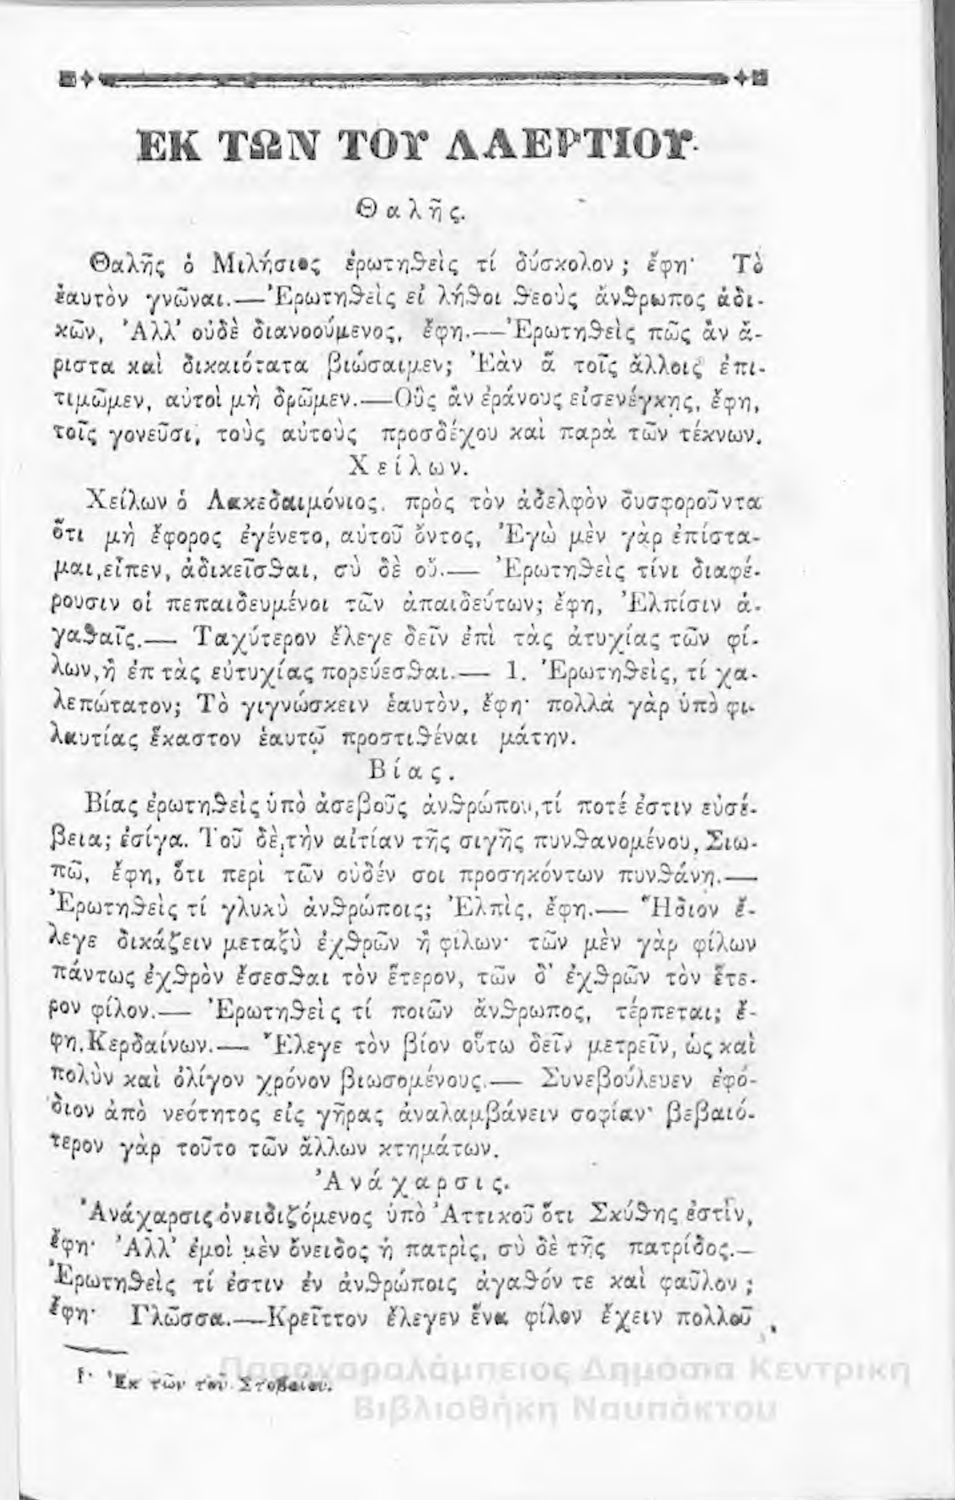 ΕΚ ΤΩΝ ΤΟΥ ΛΑΕΡΤΙΟΥ.
Θαλῆς.
Θαλῆς ὁ Μιλήσιος ἐρωτηθεὶς τί δύσκολον; ἔφη· Τὸ
ἑαυτὸν γνῶναι.—Ἐρωτηθεὶς εἰ λήθοι θεοὺς ἄνθρωπος ἀδι-
κῶν, Ἀλλ' οὐδὲ διανοούμενος, ἔφη.—Ἐρωτηθεὶς πῶς ἂν ἄ-
ριστα καὶ δικαιότατα βιώσαιμεν; Ἐὰν ἃ τοῖς ἄλλοις ἐπι-
τιμῶμεν, αὐτοὶ μὴ δρῶμεν.—Οὓς ἂν ἐράνους εἰσενέγκῃς, ἔφη,
τοῖς γονεῦσι, τοὺς αὐτοὺς προσδέχου καὶ παρὰ τῶν τέκνων.
Χείλων.
Χείλων ὁ Λακεδαιμόνιος, πρὸς τὸν ἀδελφὸν δυσφοροῦντα
ὅτι μὴ ἔφορος ἐγένετο, αὐτοῦ ὄντος, Ἐγὼ μὲν γὰρ ἐπίστα-
μαι,εἶπεν, ἀδικεῖσθαι, σὺ δὲ οὔ.— Ἐρωτηθεὶς τίνι διαφέ-
ρουσιν οἱ πεπαιδευμένοι τῶν ἀπαιδεύτων; ἔφη, Ἐλπίσιν ἀ-
γαθαῖς.— Ταχύτερον ἔλεγε δεῖν ἐπὶ τὰς ἀτυχίας τῶν φί-
λων,ἢ ἐπ τὰς εὐτυχίας πορεύεσθαι.— 1. Ἐρωτηθεὶς, τί χα-
λεπώτατον; Τὸ γιγνώσκειν ἑαυτὸν, ἔφη· πολλὰ γὰρ ὑπὸ φι-
λαυτίας ἕκαστον ἑαυτῷ προστιθέναι μάτην.
Βίας.
Βίας ἐρωτηθεὶς ὑπὸ ἀσεβοῦς ἀνθρώπου,τί ποτέ ἐστιν εὐσέ-
βεια; ἐσίγα. Τοῦ δὲ,τὴν αἰτίαν τῆς σιγῆς πυνθανομένου, Σιω-
πῶ, ἔφη, ὅτι περὶ τῶν οὐδέν σοι προσηκόντων πυνθάνῃ.—
Ἐρωτηθεὶς τί γλυκὺ ἀνθρώποις; Ἐλπὶς, ἔφη.— Ἥδιον ἔ-
λεγε δικάζειν μεταξὺ ἐχθρῶν ἢ φίλων· τῶν μὲν γὰρ φίλων
πάντως ἐχθρὸν ἔσεσθαι τὸν ἕτερον, τῶν δ' ἐχθρῶν τὸν ἕτε-
ρον φίλον.— Ἐρωτηθεὶς τί ποιῶν ἄνθρωπος, τέρπεται; ἔ-
φη.Κερδαίνων.— Ἔλεγε τὸν βίον οὕτω δεῖν μετρεῖν, ὡς καὶ
πολὺν καὶ ὀλίγον χρόνον βιωσομένους.— Συνεβούλευεν ἐφό-
διον ἀπὸ νεότητος εἰς γῆρας ἀναλαμβάνειν σοφίαν· βεβαιό-
τερον γὰρ τοῦτο τῶν ἄλλων κτημάτων.
Ἀνάχαρσις.
Ἀνάχαρσις ὀνειδιζόμενος ὑπὸ Ἀττικοῦ ὅτι Σκύθης ἐστὶν,
ἔφη· Ἀλλ' ἐμοὶ μὲν ὄνειδος ἡ πατρὶς, σὺ δὲ τῆς πατρίδος.—
Ἐρωτηθεὶς τί ἐστιν ἐν ἀνθρώποις ἀγαθόν τε καὶ φαῦλον;
ἔφη· Γλῶσσα.—Κρεῖττον ἔλεγεν ἕνα φίλον ἔχειν πολλοῦ
1· Ἐκ τῶν τοῦ Στοβαίου.
Παπαχαραλάμπειος Δημόσια Κεντρική
Βιβλιοθήκη Ναυπάκτου